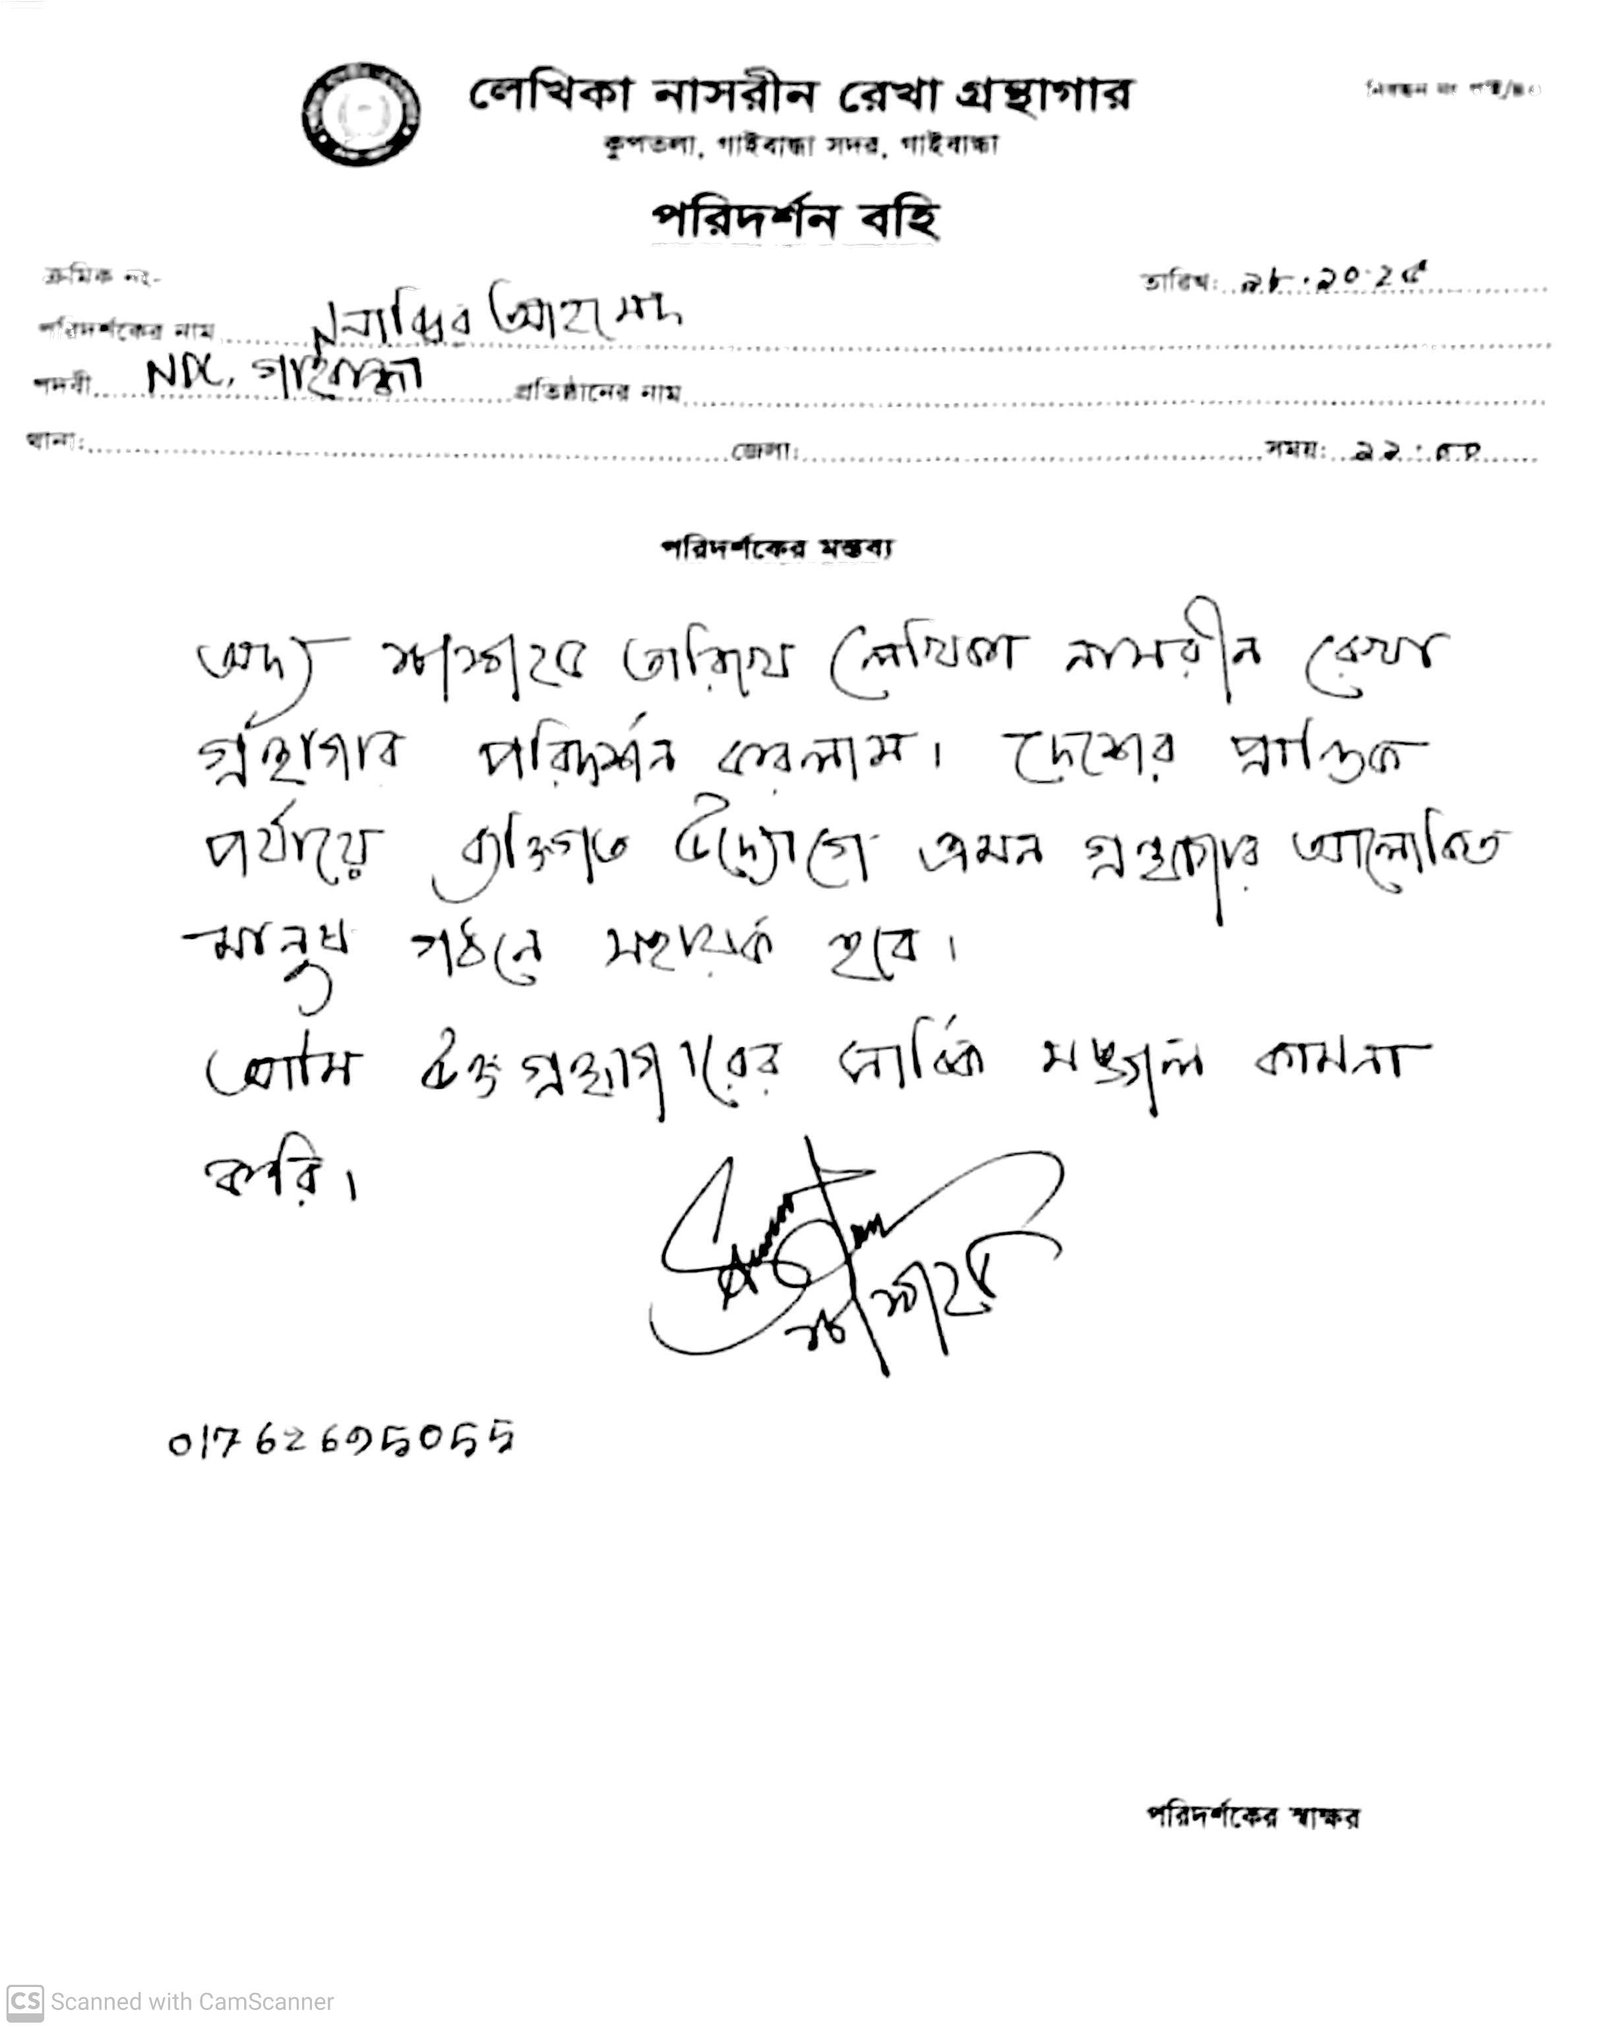 লেখিকা নাসরীন রেখা গ্রন্থাগার
কুপতলা, গাইবান্ধা সদর, গাইবান্ধা
পরিদর্শন বহি
ক্রমিক নং-
তারিখ: ১৮.১০.২৫
পরিদর্শকের নাম আহমেদ
পদবী NDC, গাইবান্ধা প্রতিষ্ঠানের নাম
থানা: জেলা: সময়: ১১:৫০
পরিদর্শকের মন্তব্য
অদ্য তারিখে লেখিকা নাসরীন রেখা
গ্রন্থাগার পরিদর্শন করলাম। দেশের প্রান্তিক
পর্যায়ে ব্যক্তিগত উদ্যোগে এমন গ্রন্থাগার আলোকিত
মানুষ গঠনে সহায়ক হবে।
আমি উক্ত গ্রন্থাগারের সার্বিক মঙ্গল কামনা
করি।
01762695055
পরিদর্শকের স্বাক্ষর
CS Scanned with CamScanner